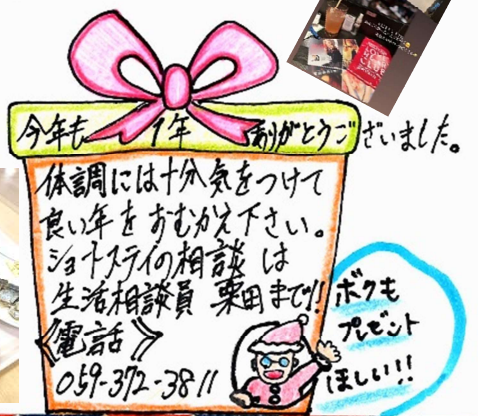 今年も 1年 ありがとうございました。
体調には十分気をつけて
良い年をおむかえ下さい。
ショートステイの相談は
生活相談員 栗田まで!!
《電話》
059-372-3811
ボクも
プレゼント
ほしい!!